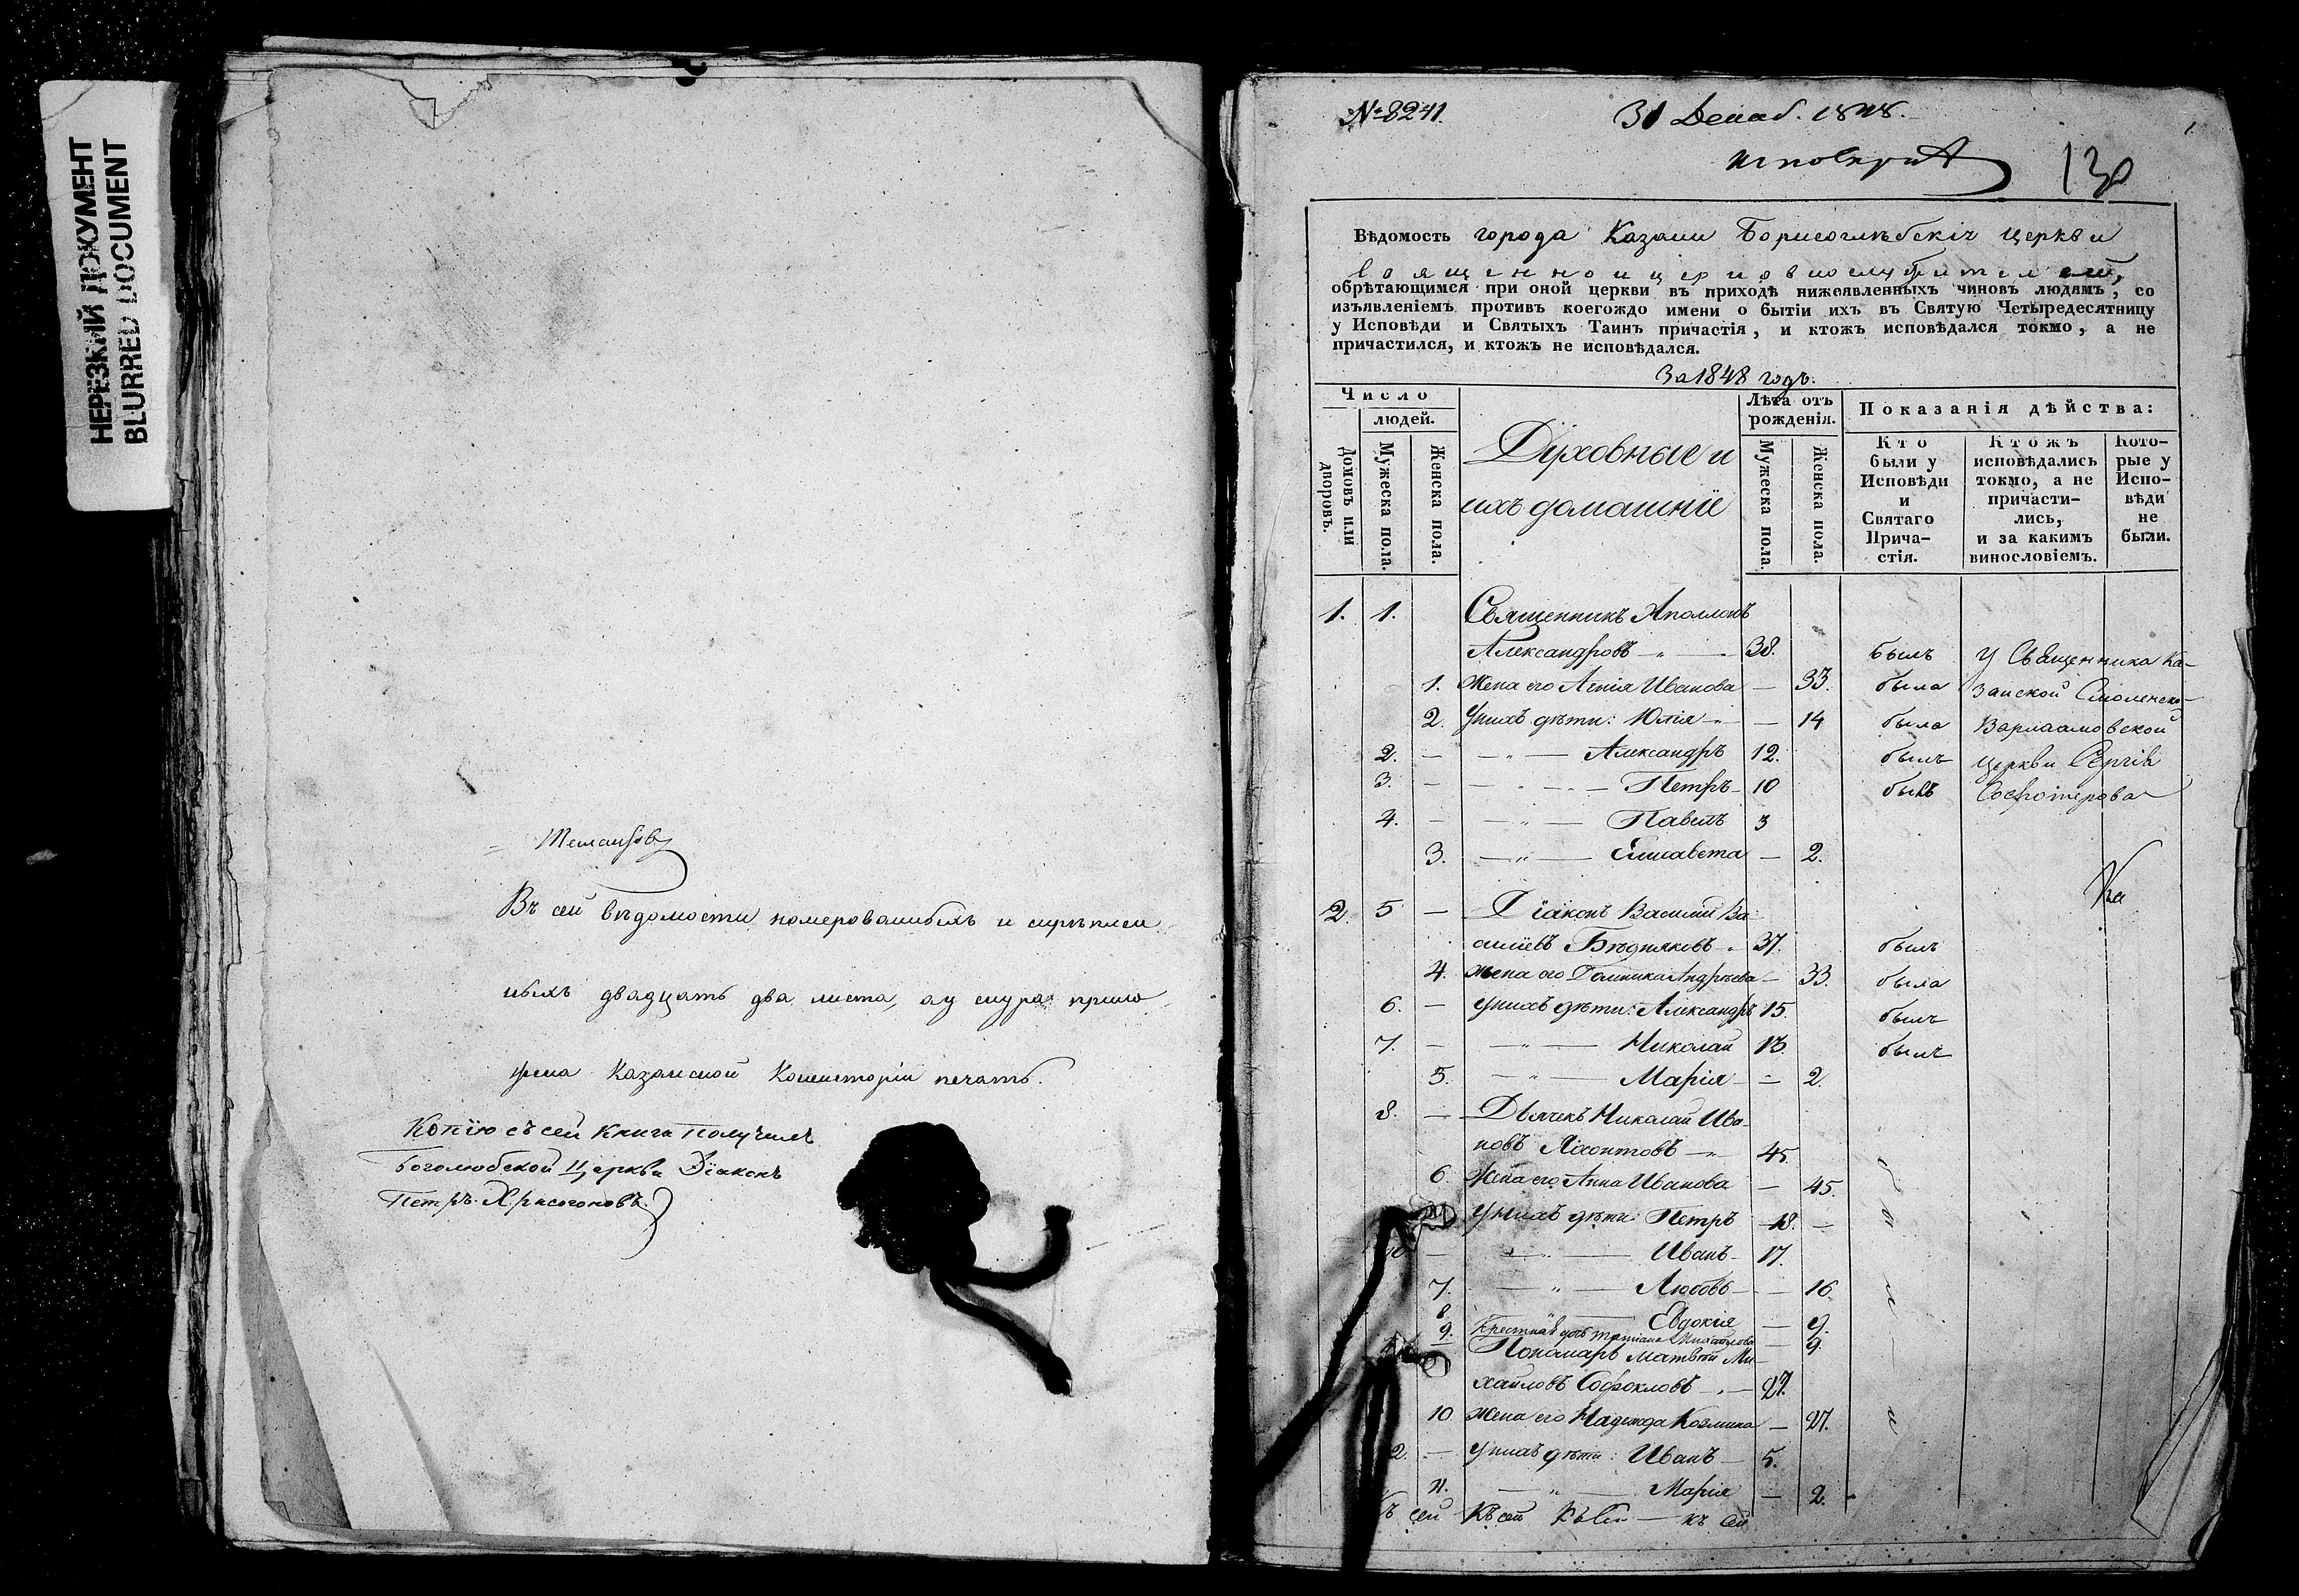 НЕРЕЗКИЙ ДОКУМЕНТ
BLURRED DOCUMENT
Въ сей вѣдомости номерованныхъ и скрѣплен
ныхъ двадцать два листа, а у снура прило
жена Казанской Консисторіи печать.
Копію съ сей книги получилъ
Боголюбской Церкви Діаконъ
Петръ Хрисогоновъ.
№ 8241.
31 Декаб. 1848.
130
Вѣдомость города Казани Борисоглѣбскія церкви
священно и церковнослужителей,
обрѣтающимся при оной церкви въ приходѣ нижеявленныхъ чиновъ людямъ, со
изъявленіемъ противъ коегождо имени о бытіи ихъ въ Святую Четыредесятницу
у Исповѣди и Святыхъ Таинъ причастія, и ктожъ исповѣдался токмо, а не
причастился, и ктожъ не исповѣдался.
За 1848 годъ.
Число
людей.
Домовъ или дворовъ.
Мужеска пола.
Женска пола.
Духовные и
ихъ домашніе
Лѣта отъ
рожденія.
Мужеска пола.
Женска пола.
Показанія дѣйства:
Кто
были у
Исповѣди
и
Святаго
Прича-
стія.
Ктожъ
исповѣдались
токмо, а не
причасти-
лись,
и за какимъ
винословіемъ.
Кото-
рые у
Испо-
вѣди
не
были.
1. 1. Священникъ Аполлонъ
Александровъ — 38. былъ У Священника Ка-
1. Жена его Агнія Иванова — 33. была занской Смоленско-
2. У нихъ дѣти: Юлія — 14 была Варлаамовской
2. — Александръ 12. былъ церкви Сергія
3. — Петръ — 10 былъ
4. — Павелъ 3
3. — Елисавета — 2.
Ка
2. 5 — Діаконъ Василій Ва
силіевъ Бѣдняковъ 37. былъ
4. Жена его Андреева — 33. была
6. — У нихъ дѣти: Александръ 15. былъ
7. — Николай 13. былъ
5. — Марія — 2.
8. — Дьячекъ Николай Ива-
новъ Яхонтовъ — 45.
6. Жена его Анна Иванова — 45.
У нихъ дѣти: Петръ — 18. —
— Иванъ — 17.
7. — Любовь — 16.
8 — Евдокія — 9.
9. Татіана Михайлова — 9.
Пономарь Матвѣй Ми-
хайловъ Софокловъ — 27.
10 Жена его Надежда Козмина — 27.
2. — У нихъ дѣти: Иванъ — 5.
11. — Марія — 2.
ъ сей Къ сей Къ сей — къ сей